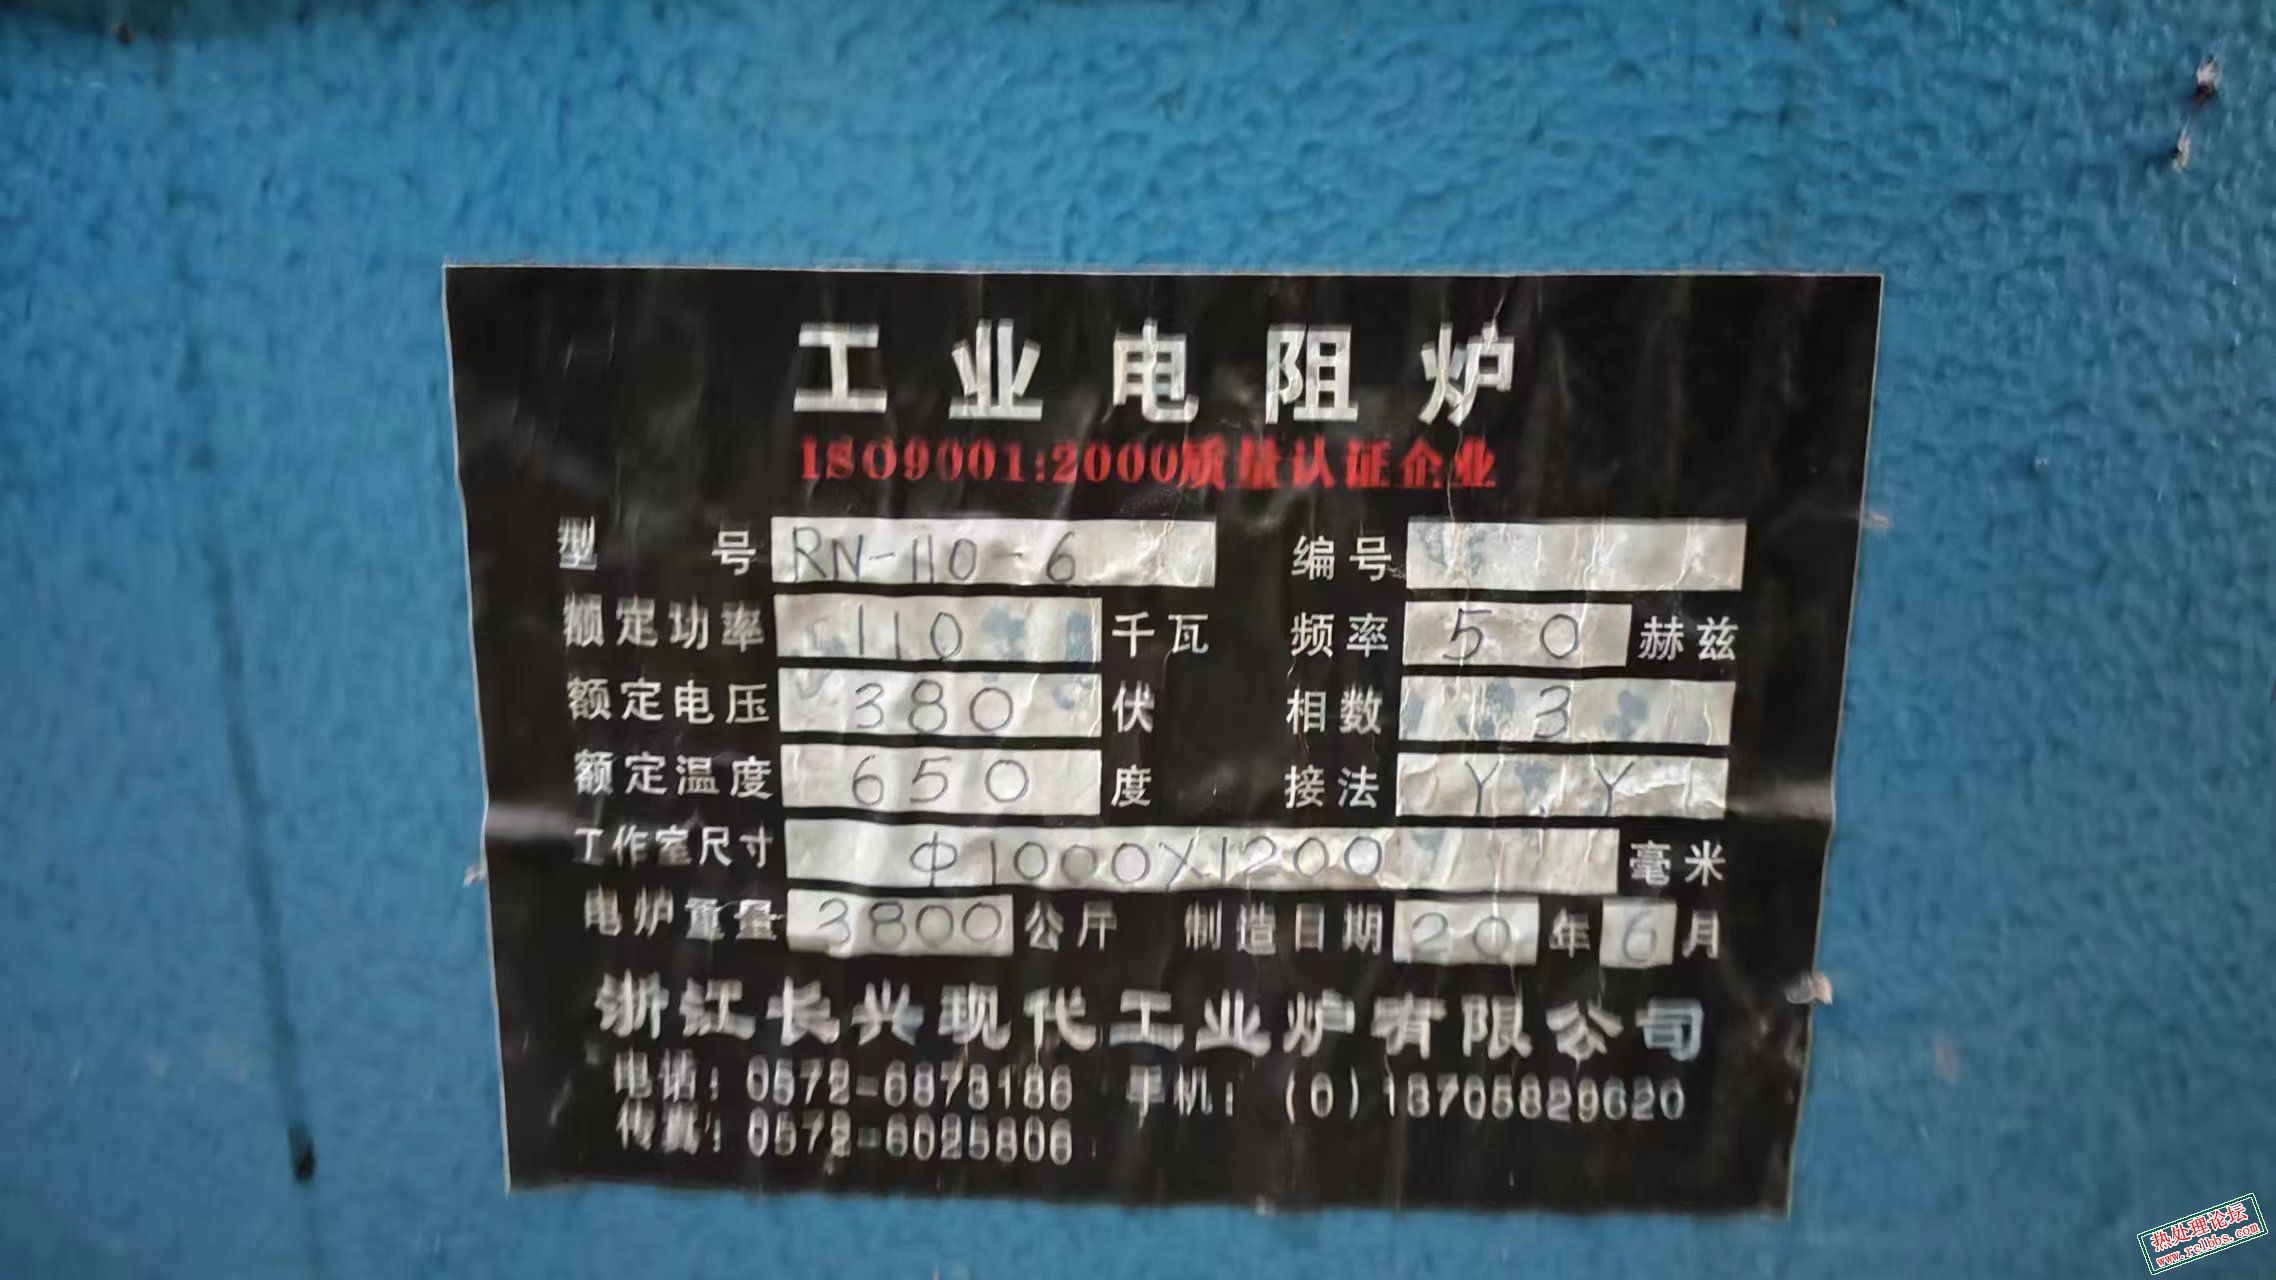 工业电阻炉
ISO9001:2000质量认证企业
型号 RN-110-6 编号
额定功率 110 千瓦 频率 50 赫兹
额定电压 380 伏 相数 3
额定温度 650 度 接法 Y.Y
工作室尺寸 Φ1000X1200 毫米
电炉重量 3800 公斤 制造日期 20 年 6 月
浙江长兴现代工业炉有限公司
电话：0572-6873186 手机：(0)13705829620
传真：0572-6025806
热处理论坛
www.rclbbs.com